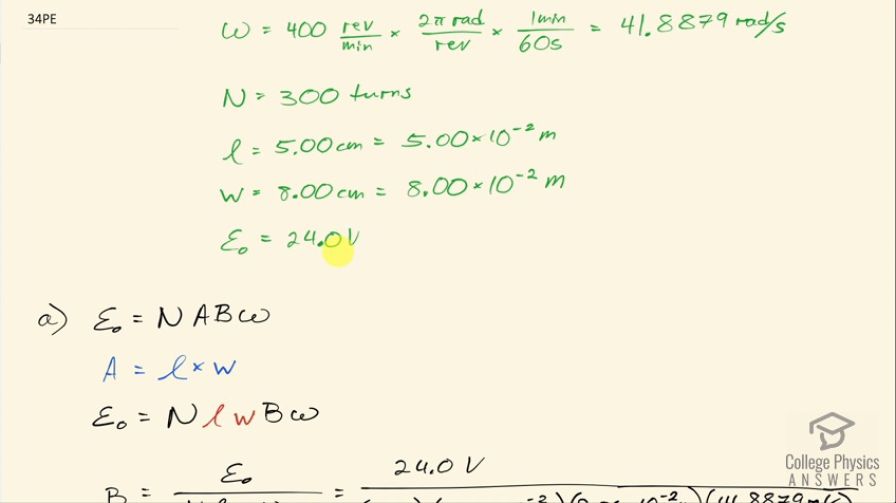 34PE
ω = 400 rev/min × 2π rad/rev × 1min/60s = 41.8879 rad/s
N = 300 turns
l = 5.00cm = 5.00×10⁻² m
w = 8.00cm = 8.00×10⁻² m
ℰ₀ = 24.0V
a) ℰ₀ = NABω
A = l × w
ℰ₀ = N l w B ω
B = ℰ₀ = 24.0 V
College Physics
ANSWERS